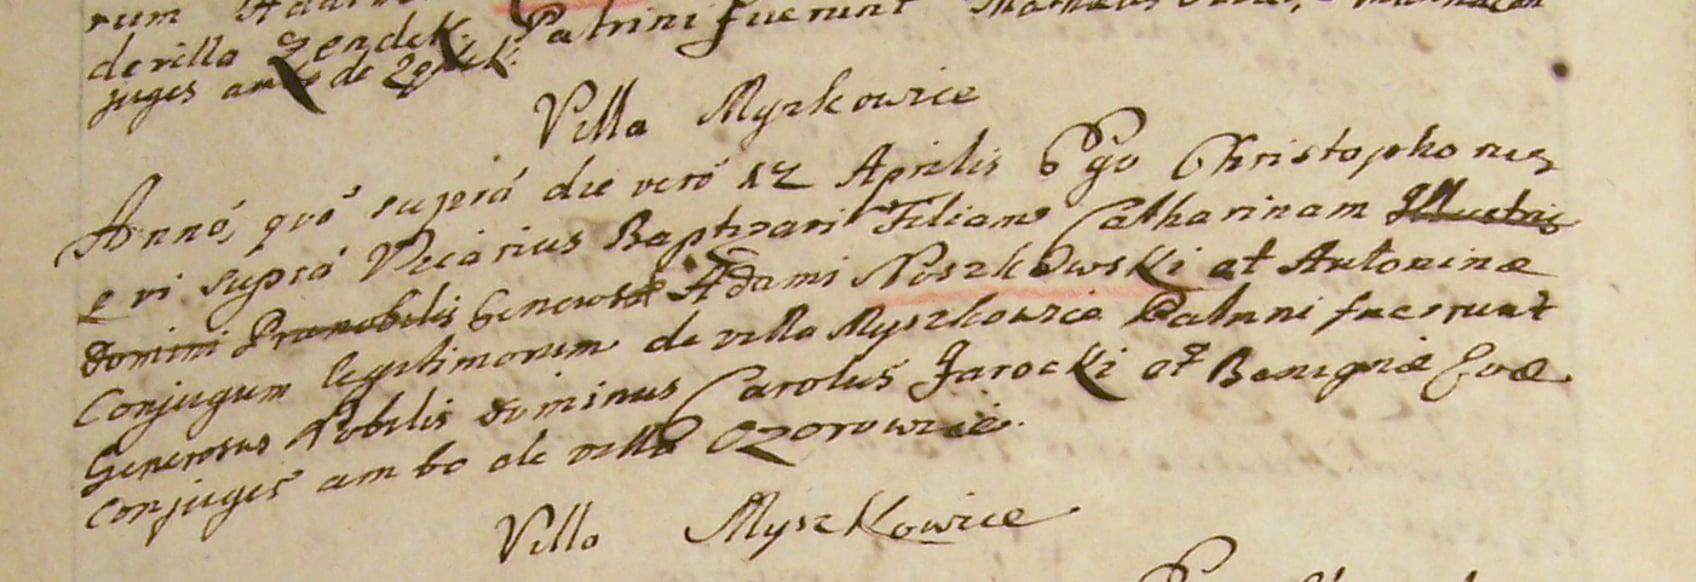 de villa Zendek. Patrini fuerunt
juges ambo de Zendek.
Villa Myszkowice
Annó, quó suprá die veró 12 Aprilis Ego Christophorus
qvi suprá Vicarius Baptizavi Filiam Catharinam Illustris
Domini Prænobilis Generosæ Adami Noszkowski et Antoninæ
Conjugum legitimorum de villa Myszkowice Patrini fuerunt
Generosus Nobilis Dominus Carolus Jarocki et Benignæ Evæ
Conjuges ambo de villa Ozorowice.
Villa Myszkowice